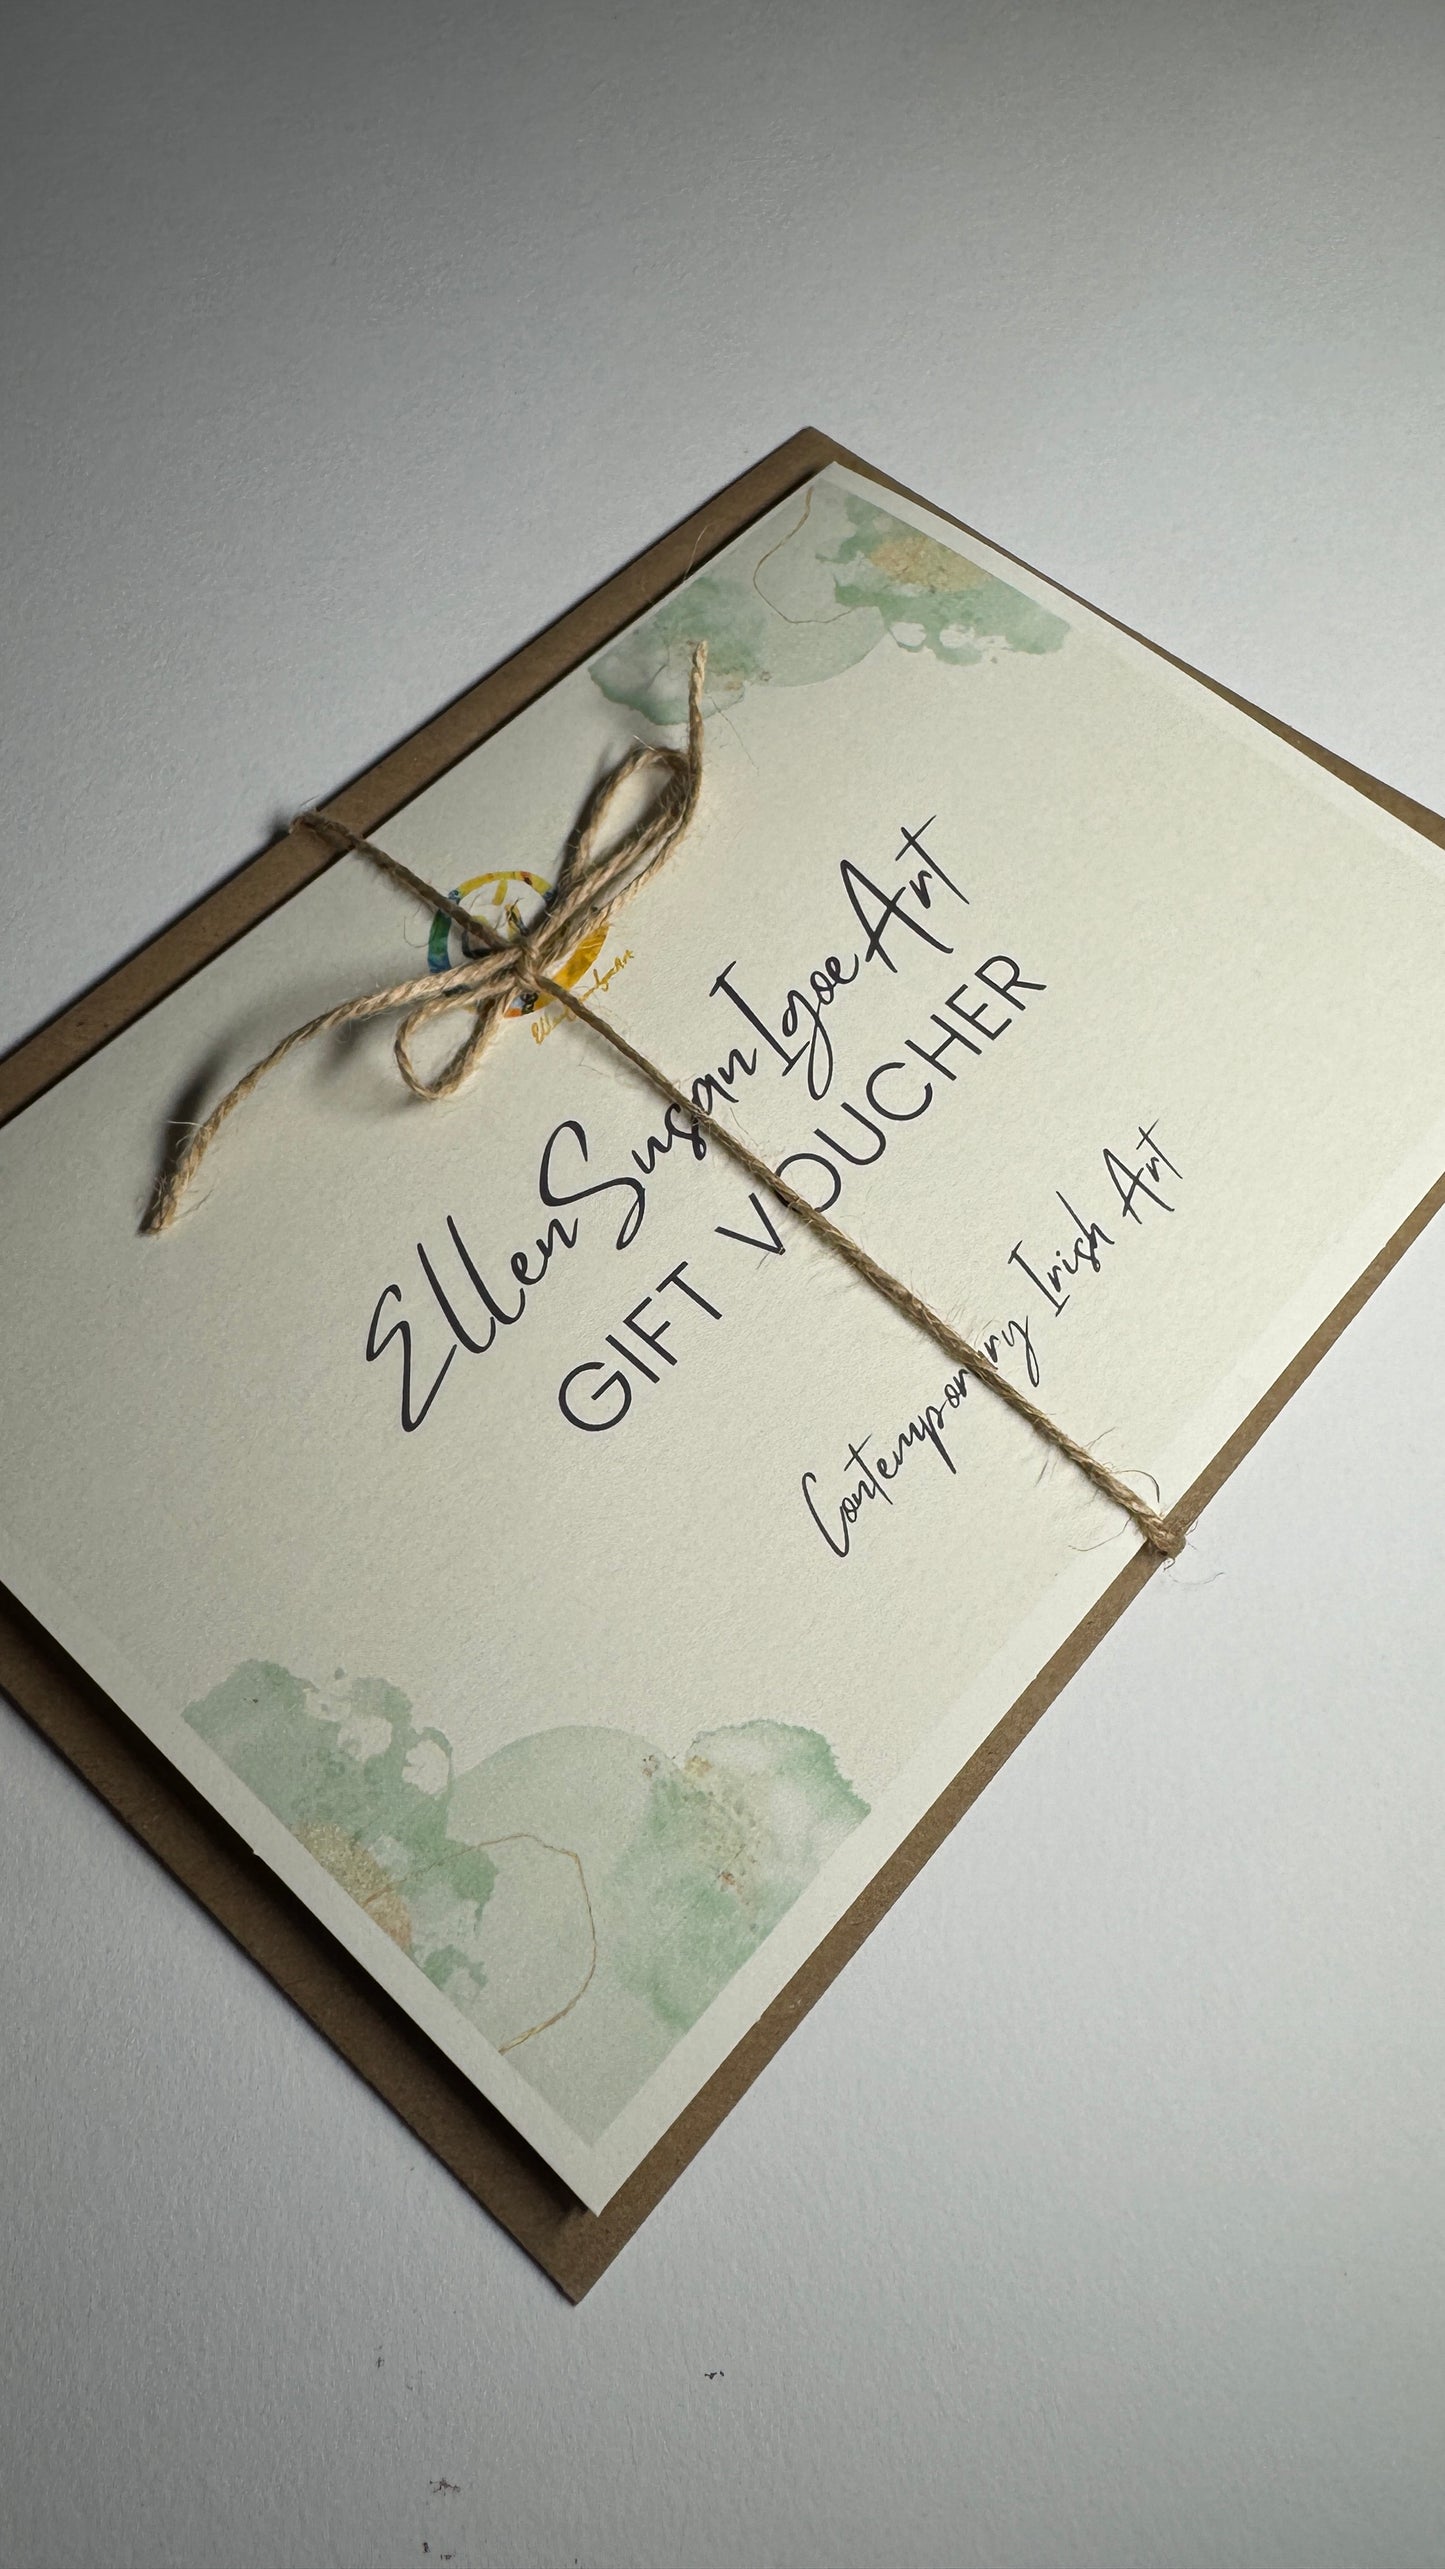 EllenSusanIgoeArt
GIFT VOUCHER
Contemporary Irish Art